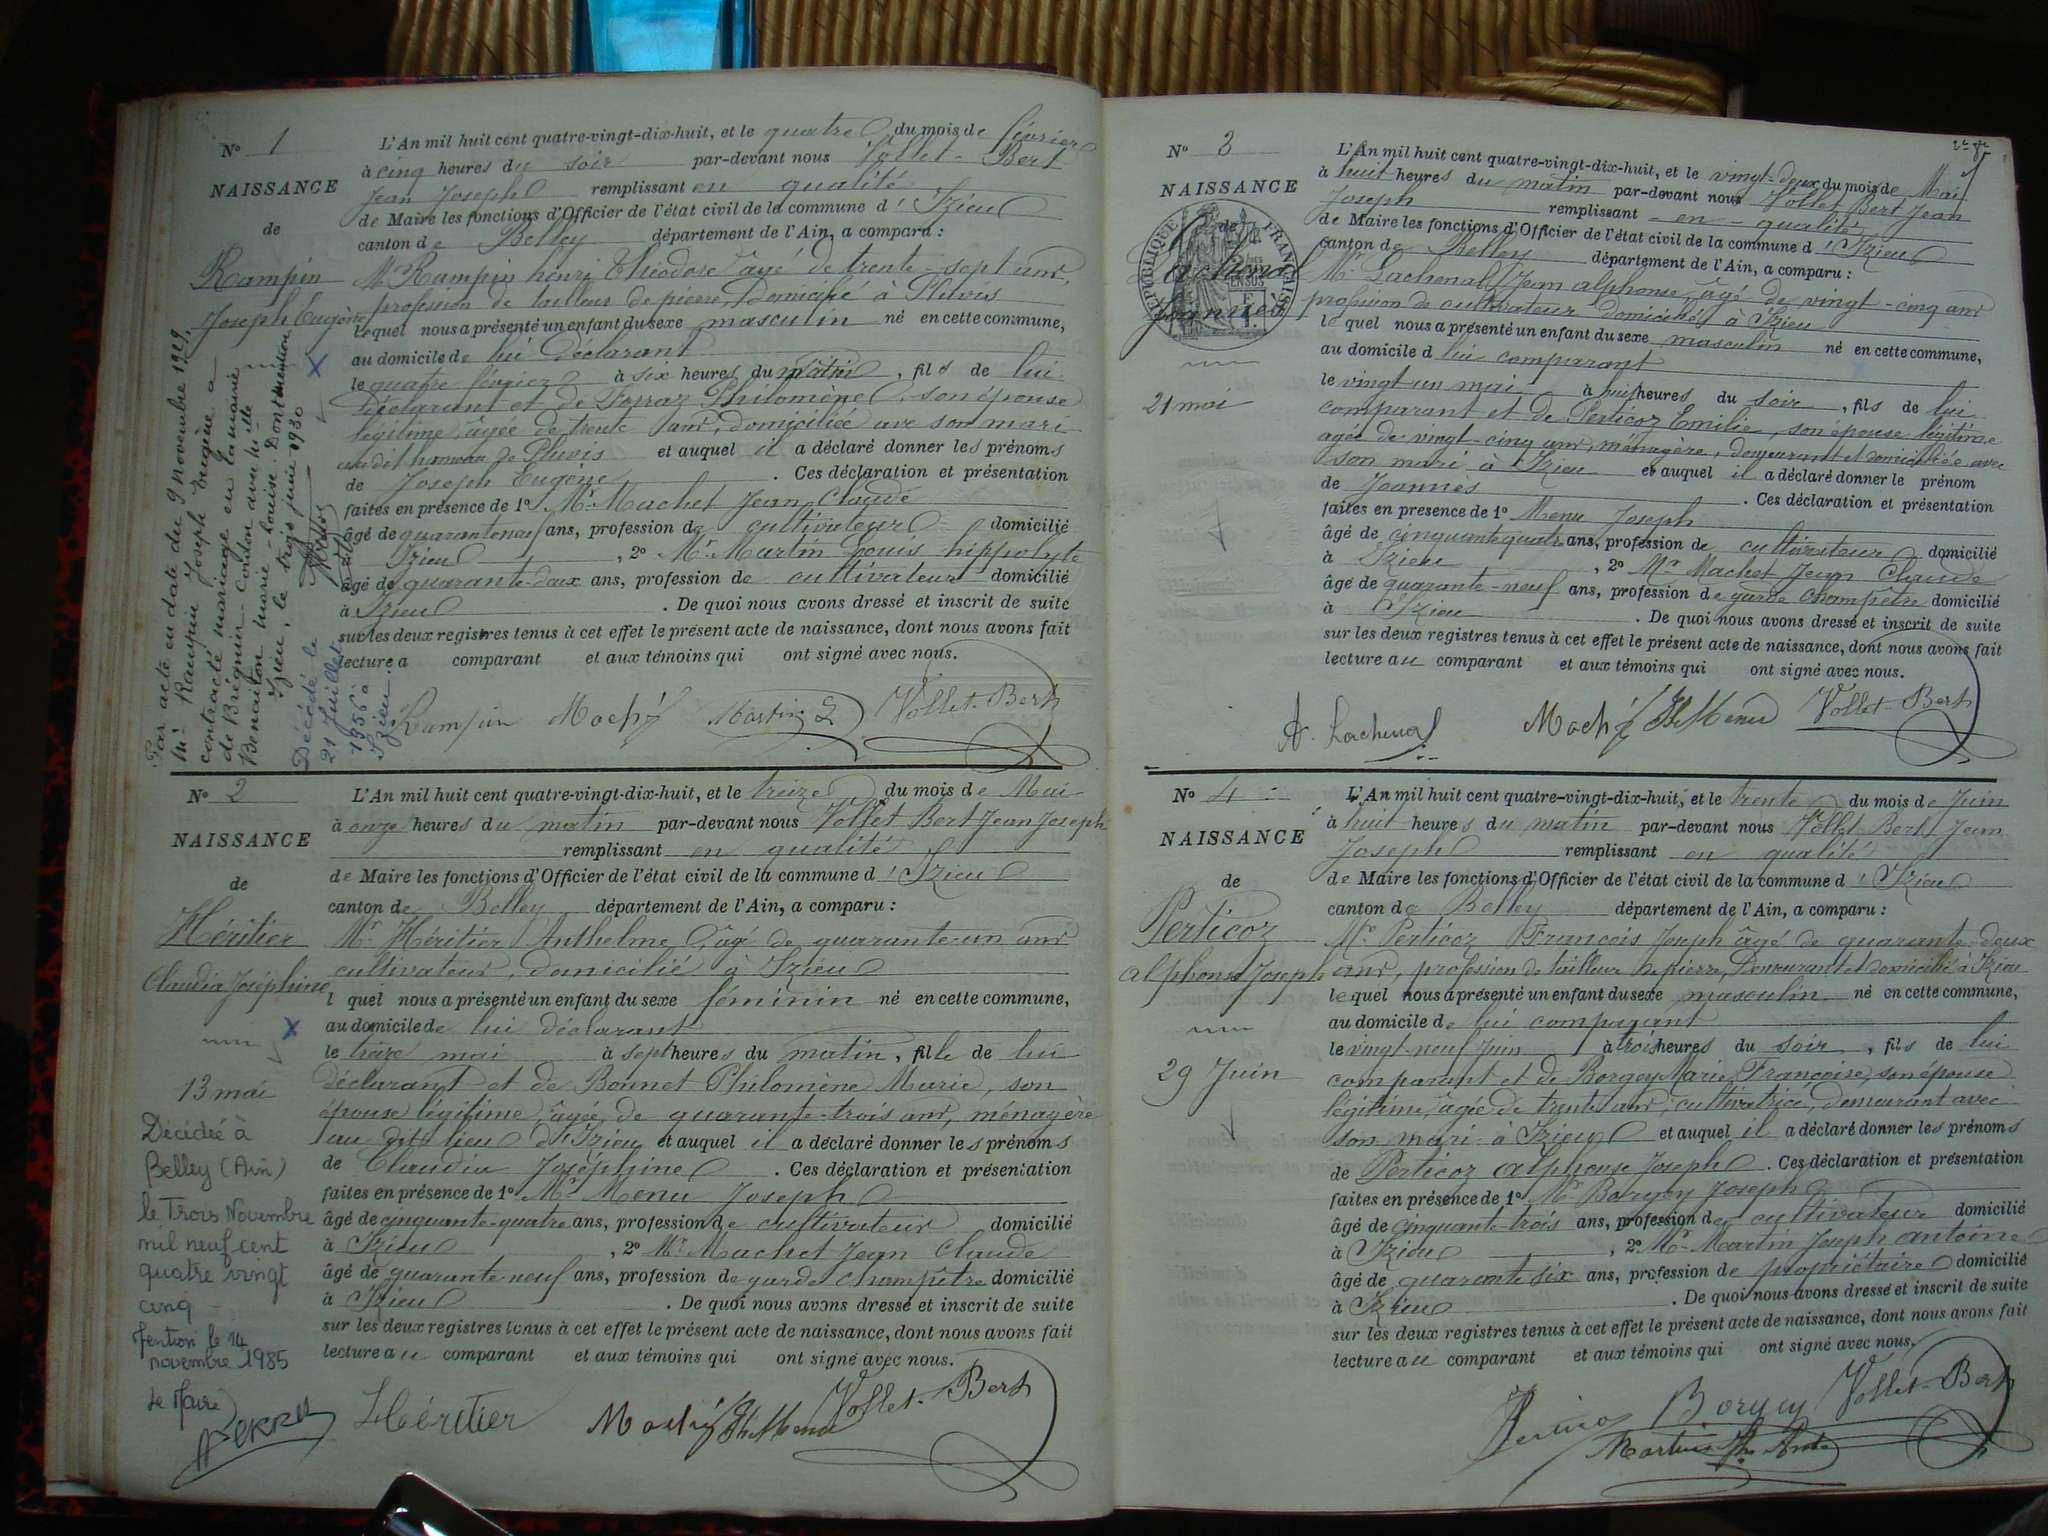 N° 1
NAISSANCE
de
Rampin
Joseph Eugène
Par acte en date du 9 novembre 1929,
Mr Rampin Joseph Eugène a
contracté mariage en la mairie
de Brégnier-Cordon avec Mlle
Benaiton Marie-Louise. Dont mention
Izieu, le trois juin 1930
Décédé le
21 Juillet
1956 à
Izieu.
L'An mil huit cent quatre-vingt-dix-huit, et le quatre du mois de février
à cinq heures du soir par-devant nous Vollet-Bert
Jean Joseph remplissant en qualité
de Maire les fonctions d'Officier de l'état civil de la commune d'Izieu
canton de Belley département de l'Ain, a comparu :
Mr Rampin henri Théodore âgé de trente-sept ans,
profession de tailleur de pierre, Domicilié à Pluvis
lequel nous a présenté un enfant du sexe masculin né en cette commune,
au domicile de lui déclarant
le quatre février à six heures du matin, fils de lui
déclarant et de Philomène, son épouse
légitime, âgée de trente ans, domiciliée avec son mari
au dit hameau de Pluvis et auquel il a déclaré donner les prénoms
de Joseph Eugène . Ces déclaration et présentation
faites en présence de 1° Mr Machet Jean Claude
âgé de quarante neuf ans, profession de cultivateur domicilié
Izieu , 2° Mr Martin Louis hippolyte
âgé de quarante-deux ans, profession de cultivateur domicilié
à Izieu . De quoi nous avons dressé et inscrit de suite
sur les deux registres tenus à cet effet le présent acte de naissance, dont nous avons fait
lecture a comparant et aux témoins qui ont signé avec nous.
Rampin Maché Martin L Vollet-Bert
N° 2
NAISSANCE
de
Héritier
Claudia Joséphine
13 mai
Décédée à
Belley (Ain)
le Trois Novembre
mil neuf cent
quatre vingt
cinq -
Mention le 14
novembre 1985
Le Maire
L'An mil huit cent quatre-vingt-dix-huit, et le treize du mois de Mai
à onze heures du matin par-devant nous Vollet Bert Jean Joseph
remplissant en qualité
de Maire les fonctions d'Officier de l'état civil de la commune d'Izieu
canton de Belley département de l'Ain, a comparu :
Mr Héritier Anthelme, âgé de quarante-un ans
cultivateur, domicilié à Izieu
l quel nous a présenté un enfant du sexe féminin né en cette commune,
au domicile de lui déclarant
le treize mai à sept heures du matin, fille de lui
déclarant et de Bonnet Philomène Marie, son
épouse légitime, âgée de quarante-trois ans, ménagère
au dit lieu d'Izieu et auquel il a déclaré donner les prénoms
de Claudia Joséphine . Ces déclaration et présentation
faites en présence de 1° Mr Menu Joseph
âgé de cinquante-quatre ans, profession de cultivateur domicilié
à Izieu , 2° Mr Machet Jean Claude
âgé de quarante-neuf ans, profession de garde champêtre domicilié
à Izieu . De quoi nous avons dressé et inscrit de suite
sur les deux registres tenus à cet effet le présent acte de naissance, dont nous avons fait
lecture au comparant et aux témoins qui ont signé avec nous.
Héritier Maché Menu Vollet-Bert
N° 3
NAISSANCE
de
Lachenal
Joannès
RÉPUBLIQUE FRANÇAISE
21 mai
L'An mil huit cent quatre-vingt-dix-huit, et le vingt-deux du mois de Mai
à huit heures du matin par-devant nous Vollet Bert Jean
Joseph remplissant en qualité
de Maire les fonctions d'Officier de l'état civil de la commune d'Izieu
canton de Belley département de l'Ain, a comparu :
Mr Lachenal Jean alphonse, âgé de vingt-cinq ans
profession de cultivateur domicilié à Izieu
lequel nous a présenté un enfant du sexe masculin né en cette commune,
au domicile d lui comparant
le vingt un mai à huit heures du soir, fils de lui
comparant et de Perticoz Emilie, son épouse légitime
agée de vingt-cinq ans, ménagère, demeurant et domiciliée avec
son mari à Izieu et auquel il a déclaré donner le prénom
de Joannès . Ces déclaration et présentation
faites en présence de 1° Menu Joseph
âgé de cinquante quatre ans, profession de cultivateur domicilié
à Izieu , 2° Mr Machet Jean Claude
âgé de quarante-neuf ans, profession de garde champêtre domicilié
à Izieu . De quoi nous avons dressé et inscrit de suite
sur les deux registres tenus à cet effet le présent acte de naissance, dont nous avons fait
lecture au comparant et aux témoins qui ont signé avec nous.
A. Lachenal Maché Menu Vollet-Bert
N° 4
NAISSANCE
de
Perticoz
alphonse Joseph
29 Juin
L'An mil huit cent quatre-vingt-dix-huit, et le trente du mois de Juin
à huit heures du matin par-devant nous Vollet-Bert Jean
Joseph remplissant en qualité
de Maire les fonctions d'Officier de l'état civil de la commune d'Izieu
canton de Belley département de l'Ain, a comparu :
Mr Perticoz François Joseph âgé de quarante-deux
ans, profession de tailleur de pierre, Demeurant et domicilié à Izieu
lequel nous a présenté un enfant du sexe masculin né en cette commune,
au domicile de lui comparant
le vingt-neuf Juin à trois heures du soir, fils de lui
comparant et de Borgey Marie Françoise, son épouse
légitime, âgée de trente ans, cultivatrice, demeurant avec
son mari à Izieu et auquel il a déclaré donner les prénoms
de Perticoz alphonse Joseph . Ces déclaration et présentation
faites en présence de 1° Mr Borgey Joseph
âgé de cinquante-trois ans, profession de cultivateur domicilié
à Izieu , 2° Mr Martin Joseph antoine
âgé de quarante six ans, profession de propriétaire domicilié
à Izieu . De quoi nous avons dressé et inscrit de suite
sur les deux registres tenus à cet effet le présent acte de naissance, dont nous avons fait
lecture au comparant et aux témoins qui ont signé avec nous.
Borgey Vollet-Bert
Martin